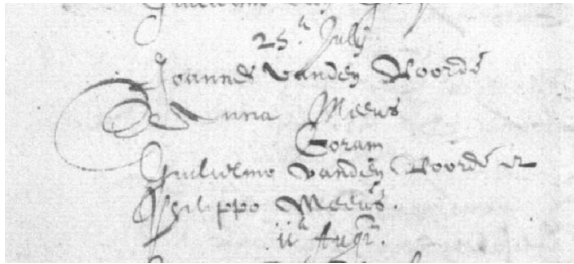 25ᵃ July
Joannes Vanden Voorde
Anna Meeus
Coram
Guilielmo Vanden Voorde et
Philippo Meeus.
11ᵃ Aug.